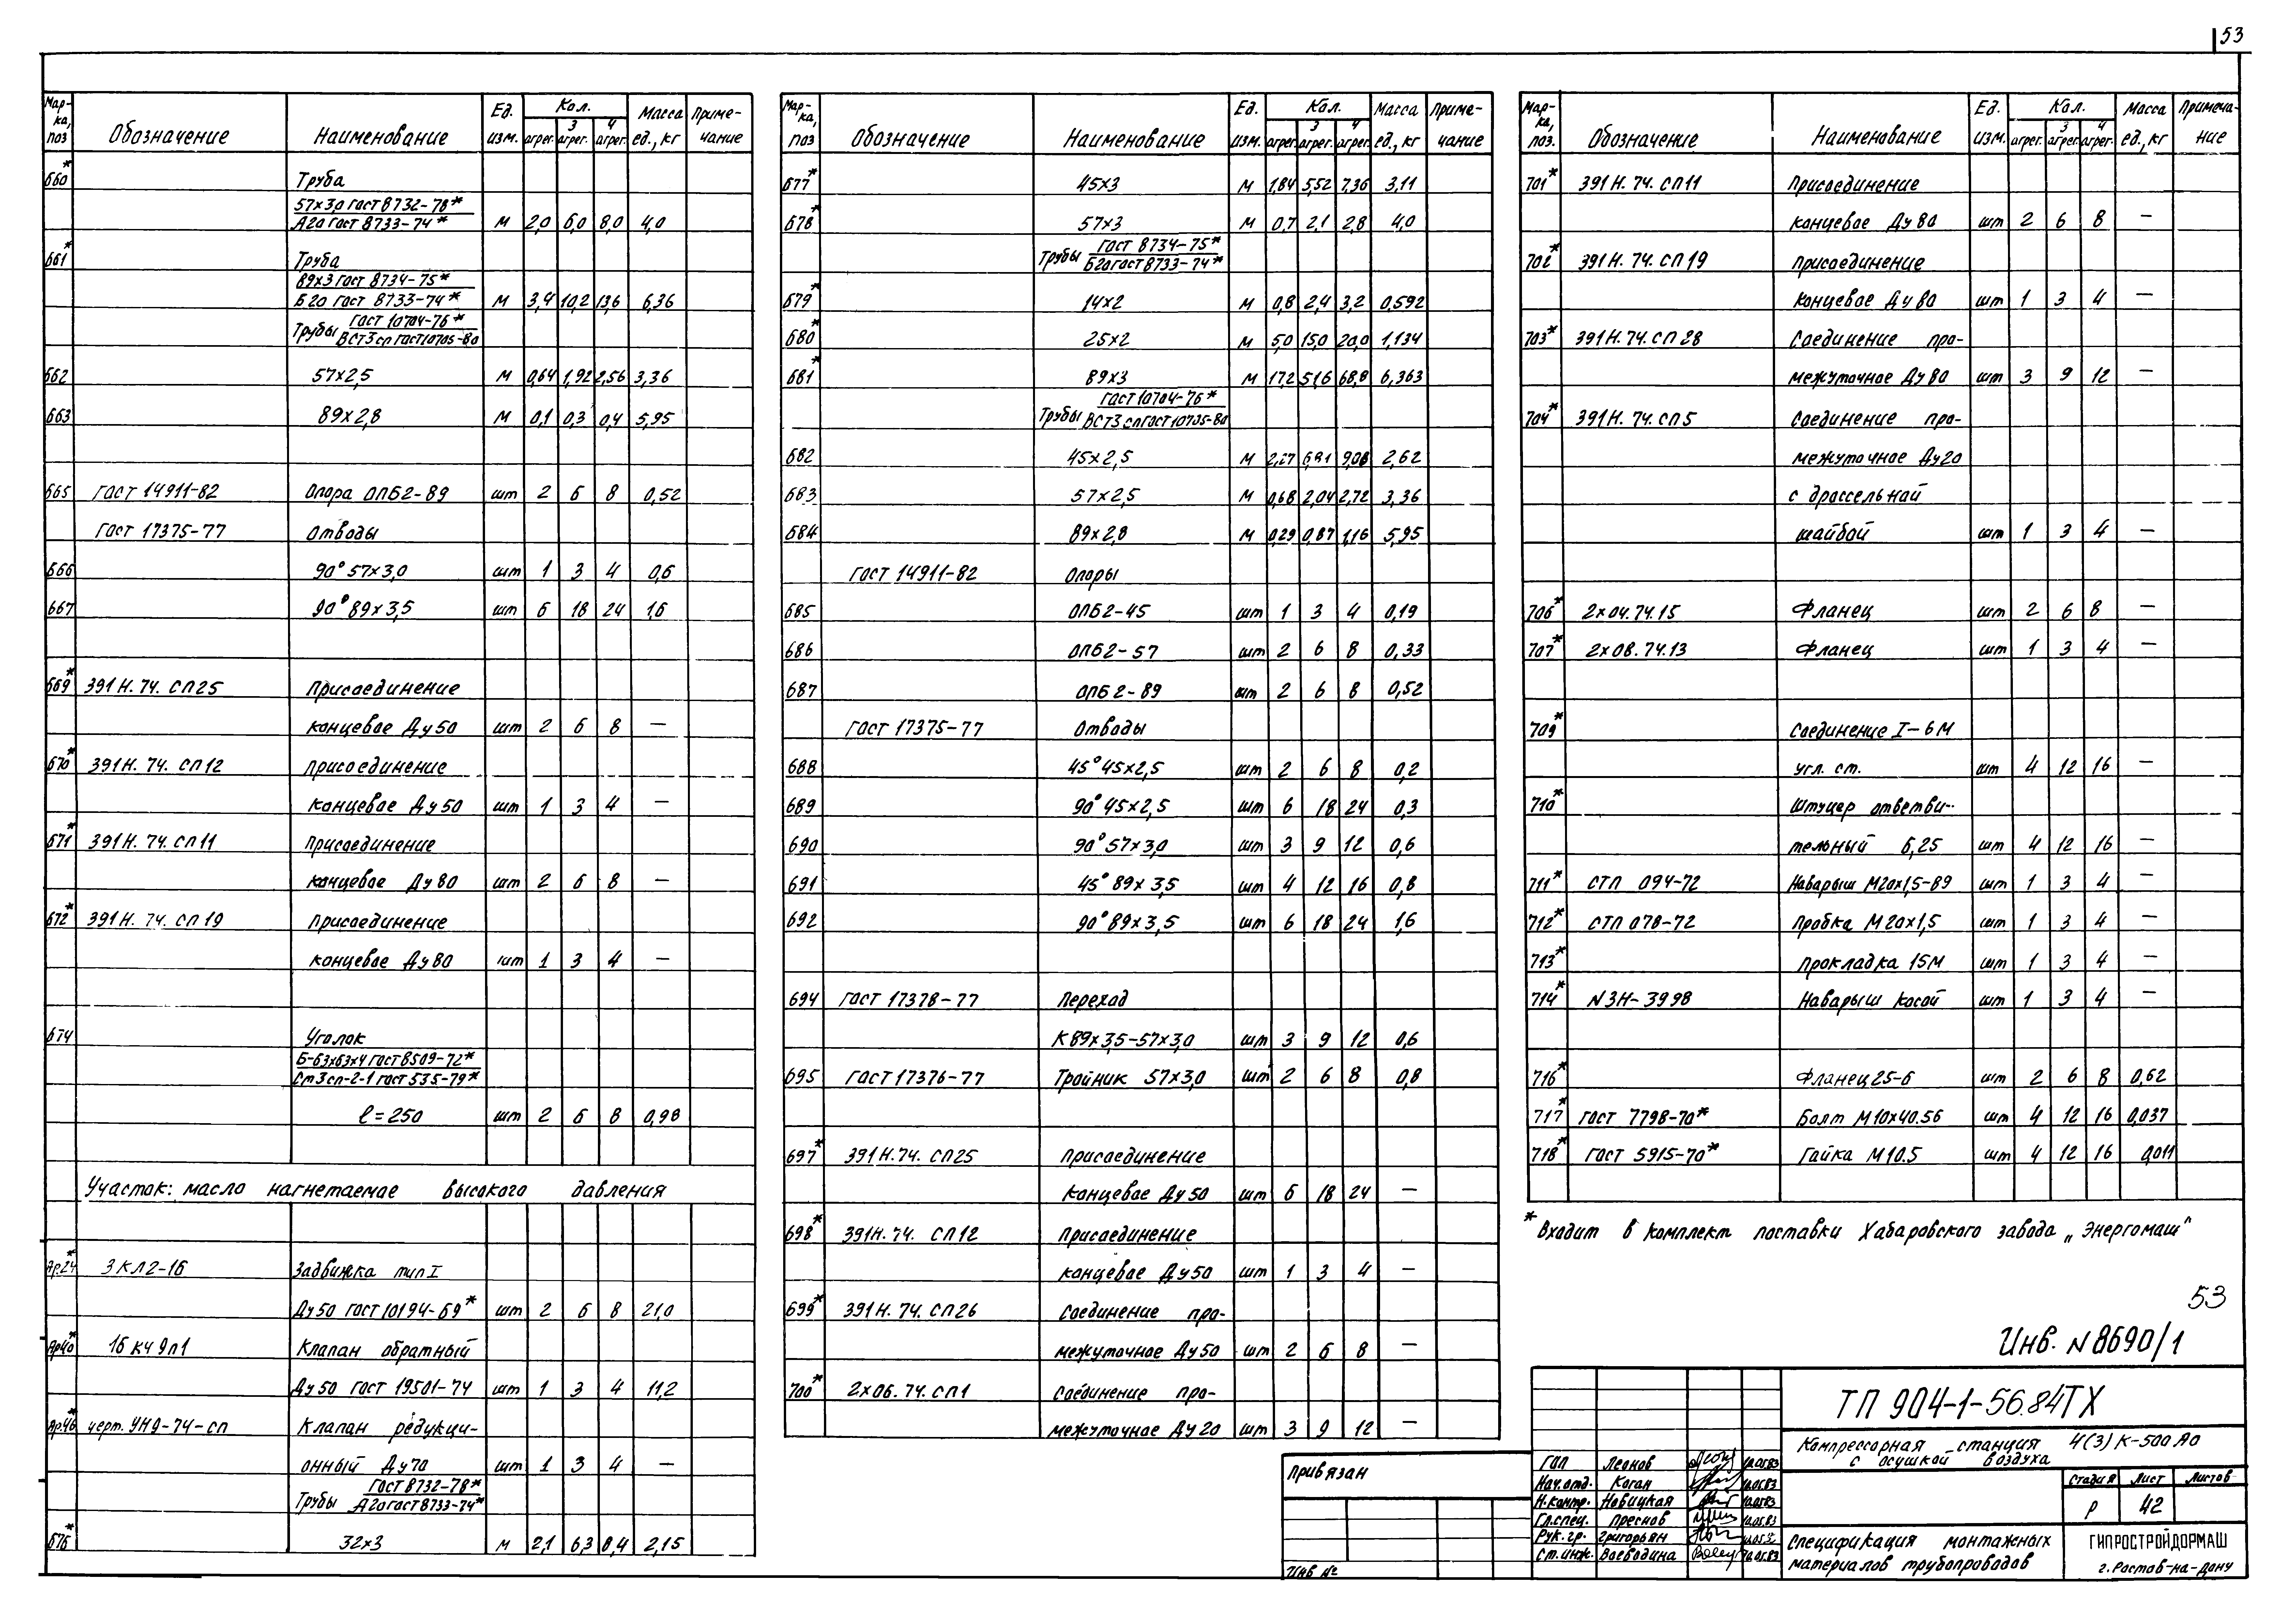 53
Мар-ка, поз | Обозначение | Наименование | Ед. изм. | Кол. агрег. | 3 агрег. | 4 агрег. | Масса ед., кг | Приме-чание
660* Труба
57х3,0 ГОСТ 8732-78*
А20 ГОСТ 8733-74* м 2,0 6,0 8,0 4,0
661* Труба
89х3 ГОСТ 8734-75*
Б20 ГОСТ 8733-74* м 3,4 10,2 13,6 6,36
Трубы ГОСТ 10704-76*
ВСТ3сп ГОСТ 10705-80
662 57х2,5 м 0,64 1,92 2,56 3,36
663 89х2,8 м 0,1 0,3 0,4 5,95
665 ГОСТ 14911-82 Опора ОПБ2-89 шт 2 6 8 0,52
ГОСТ 17375-77 Отводы
666 90° 57х3,0 шт 1 3 4 0,6
667 90° 89х3,5 шт 6 18 24 1,6
669* 391Н.74.СП25 Присоединение
концевое Ду50 шт 2 6 8 —
670* 391Н.74.СП12 Присоединение
концевое Ду50 шт 1 3 4 —
671* 391Н.74.СП11 Присоединение
концевое Ду80 шт 2 6 8 —
672* 391Н.74.СП19 Присоединение
концевое Ду80 шт 1 3 4 —
674 Уголок
Б-63х63х4 ГОСТ 8509-72*
Ст3сп-2-1 ГОСТ 535-79*
ℓ=250 шт 2 6 8 0,98
Участок: масло нагнетаемое высокого давления
Ар.24* 3КЛ2-16 Задвижка тип I
Ду50 ГОСТ 10194-69* шт 2 6 8 21,0
Ар40* 16кч9п1 Клапан обратный
Ду50 ГОСТ 19501-74 шт 1 3 4 11,2
Ар.46* черт. УН9-74-сп Клапан редукци-
онный Ду70 шт 1 3 4 —
Трубы ГОСТ 8732-78*
А20 ГОСТ 8733-74*
676* 32х3 м 2,1 6,3 8,4 2,15
Мар-ка, поз | Обозначение | Наименование | Ед. изм. | Кол. агрег. | 3 агрег. | 4 агрег. | Масса ед., кг | Приме-чание
677* 45х3 м 1,84 5,52 7,36 3,11
678* 57х3 м 0,7 2,1 2,8 4,0
Трубы ГОСТ 8734-75*
Б20 ГОСТ 8733-74*
679* 14х2 м 0,8 2,4 3,2 0,592
680* 25х2 м 5,0 15,0 20,0 1,134
681* 89х3 м 17,2 51,6 68,8 6,363
Трубы ГОСТ 10704-76*
ВСТ3сп ГОСТ 10705-80
682 45х2,5 м 2,27 6,81 9,08 2,62
683 57х2,5 м 0,68 2,04 2,72 3,36
684 89х2,8 м 0,29 0,87 1,16 5,95
ГОСТ 14911-82 Опоры
685 ОПБ2-45 шт 1 3 4 0,19
686 ОПБ2-57 шт 2 6 8 0,33
687 ОПБ2-89 шт 2 6 8 0,52
ГОСТ 17375-77 Отводы
688 45° 45х2,5 шт 2 6 8 0,2
689 90° 45х2,5 шт 6 18 24 0,3
690 90° 57х3,0 шт 3 9 12 0,6
691 45° 89х3,5 шт 4 12 16 0,8
692 90° 89х3,5 шт 6 18 24 1,6
694 ГОСТ 17378-77 Переход
К89х3,5-57х3,0 шт 3 9 12 0,6
695 ГОСТ 17376-77 Тройник 57х3,0 шт 2 6 8 0,8
697* 391Н.74.СП25 Присоединение
концевое Ду50 шт 6 18 24 —
698* 391Н.74.СП12 Присоединение
концевое Ду50 шт 1 3 4 —
699* 391Н.74.СП26 Соединение про-
межуточное Ду50 шт 2 6 8 —
700* 2х06.74.СП1 Соединение про-
межуточное Ду20 шт 3 9 12 —
Мар-ка, поз. | Обозначение | Наименование | Ед. изм. | Кол. агрег. | 3 агрег. | 4 агрег. | Масса ед., кг | Примеча-ние
701* 391Н.74.СП11 Присоединение
концевое Ду80 шт 2 6 8 —
702* 391Н.74.СП19 Присоединение
концевое Ду80 шт 1 3 4 —
703* 391Н.74.СП28 Соединение про-
межуточное Ду80 шт 3 9 12 —
704* 391Н.74.СП5 Соединение про-
межуточное Ду20
с дроссельной
шайбой шт 1 3 4 —
706* 2х04.74.15 Фланец шт 2 6 8 —
707* 2х08.74.13 Фланец шт 1 3 4 —
709* Соединение I-6М
угл. ст. шт 4 12 16 —
710* Штуцер ответви-
тельный 6,25 шт 4 12 16 —
711* СТП 094-72 Наварыш М20х1,5-89 шт 1 3 4 —
712* СТП 078-72 Пробка М20х1,5 шт 1 3 4 —
713* Прокладка 15М шт 1 3 4 —
714* N3Н-3998 Наварыш косой шт 1 3 4 —
716* Фланец 25-6 шт 2 6 8 0,62
717* ГОСТ 7798-70* Болт М10х40.56 шт 4 12 16 0,037
718* ГОСТ 5915-70* Гайка М10.5 шт 4 12 16 0,011
* Входит в комплект поставки Хабаровского завода „Энергомаш"
53
Инв. N 8690/1
ТП 904-1-56.84ТХ
Компрессорная станция 4(3)К-500АО
с осушкой воздуха
Привязан
Инв №
ГИП Леонов 10.05.83
Нач.отд. Коган 10.05.83
Н.контр. Новицкая 10.05.83
Гл.спец. Преснов 10.05.83
Рук.гр. Григорьян 10.05.83
Ст.инж. Воеводина 10.05.83
Стадия Лист Листов
Р 42
Спецификация монтажных
материалов трубопроводов
ГИПРОСТРОЙДОРМАШ
г. Ростов-на-Дону